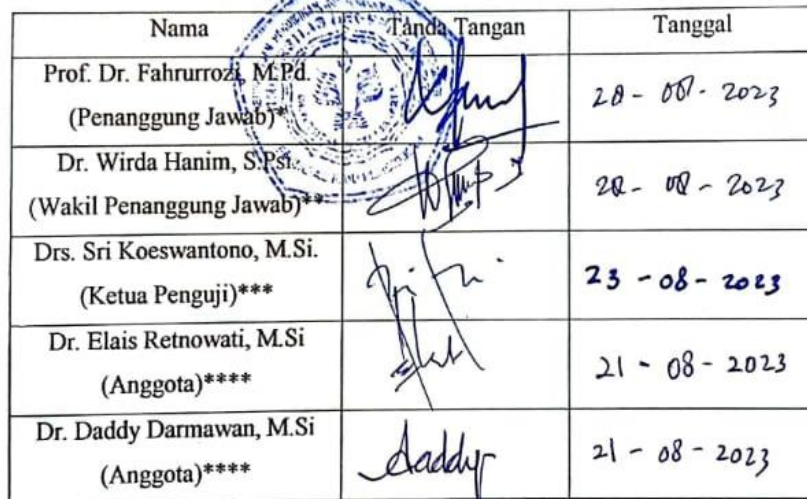 Nama Tanda Tangan Tanggal
Prof. Dr. Fahrurrozi, M.Pd.
(Penanggung Jawab)*
28 - 08 - 2023
Dr. Wirda Hanim, S.Psi.
(Wakil Penanggung Jawab)**
28 - 08 - 2023
Drs. Sri Koeswantono, M.Si.
(Ketua Penguji)***
23 - 08 - 2023
Dr. Elais Retnowati, M.Si
(Anggota)****
21 - 08 - 2023
Dr. Daddy Darmawan, M.Si
(Anggota)****
Daddy
21 - 08 - 2023